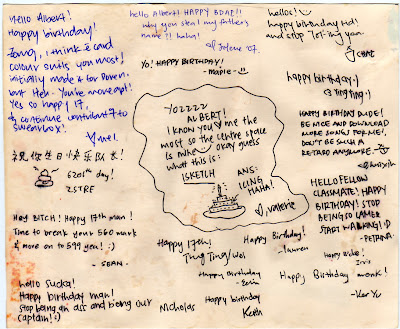 Hello Albert!
Happy birthday!
I think
colour suits you most!
initially made it for
but Heh - You're more apt!
Yes so happy 17,
& continue contribut7 to
swearbox!
hello Albert! HAPPY BDAE!!
why you steal my father's
name!! haha!
Jolene '07.
Yo! HAPPY BIRTHDAY!
- marie
hello!
happy birthday
and stop
CHAI
happy birthday:)
Ting Ting:)
YOZZZZ
ALBERT!
I know you me the
most so the centre space
is mine okay guess
what this is:
ISKETCH
ANS:
ICING
HAHA!
valerie
HAPPY BIRTHDAY DUDE!
BE NICE AND DOWNLOAD
MORE SONGS FOR ME!
DON'T BE SUCH A
RETARD ANYMORE
祝你生日小快乐队长!
620st day!
2STRE
HELLO FELLOW
CLASSMATE! HAPPY
BIRTHDAY! STOP
BEING SO LAMER
START WALKING! :D
- PETRINA.
Hey BITCH! Happy 17th man!
Time to break your 560 mark
& more on to 599 yea! :)
- SEAN.
Happy 17th!
Ting Ting/Wei
Happy Birthday!
- lauren
Happy Bday!
Iris
Happy Birthday
Happy Birthday monk!
- Ker Yu
hello Sucka!
Happy birthday man!
Stop being an ass and being our
captain! :)
Nicholas
Happy birthday
Keith